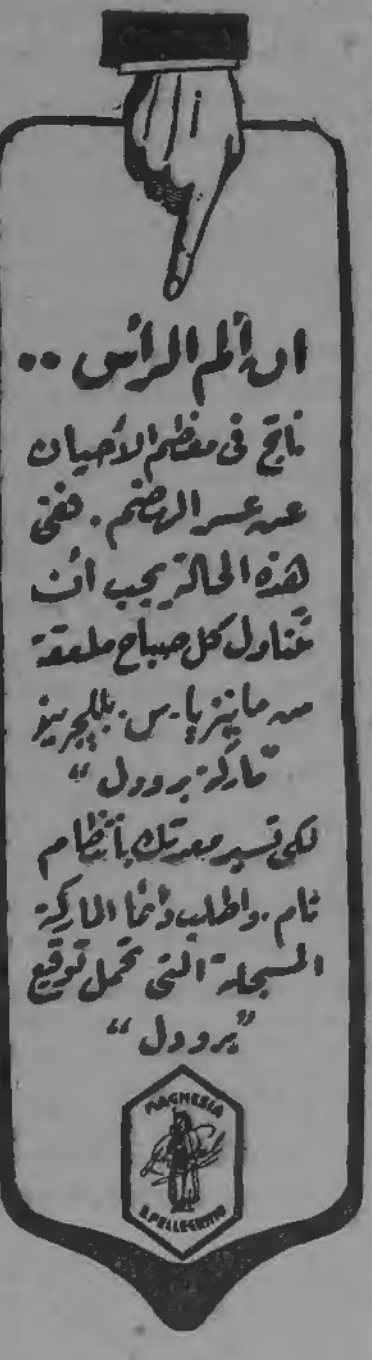 ان ألم الرأس ..
ناتج فى معظم الأحيان
عن عسر الهضم . ففى
هذه الحالة يجب أن
تتناول كل صباح ملعقة
من مانيزيا . س . بللجرينو
ماركة برودل "
لكى تسير معدتك بانتظام
تام . واطلب دائما الماركة
المسجلة التى تحمل توقيع
" برودل "
MAGNESIA
S.PELLEGRINO